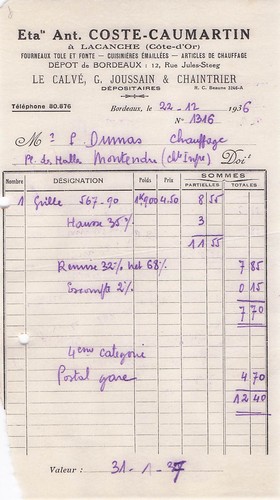 Etats Ant. COSTE-CAUMARTIN
à LACANCHE (Côte-d'Or)
FOURNEAUX TOLE ET FONTE - CUISINIÈRES ÉMAILLÉES - ARTICLES DE CHAUFFAGE
DÉPOT de BORDEAUX : 12, Rue Jules-Steeg
LE CALVÉ, G. JOUSSAIN & CHAINTRIER
DÉPOSITAIRES
R. C. Beaune 3246-A
Téléphone 80.876
Bordeaux, le 22-12 1936
N° 1316
M r P Dumas Chauffage
Pl. de Halle Montendre (Chte Infre) Doit
Nombre DÉSIGNATION Poids Prix SOMMES
PARTIELLES TOTALES
1 Grille 567-90 1k900 4.50 8 55
Hausse 35% 3
11 55
Remise 32% net 68% 7 85
Escompte 2% 0 15
7 70
4eme categorie
Postal gare 4 70
12 40
Valeur : 31-1-37